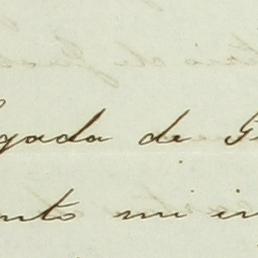 gada de G
ento mi in